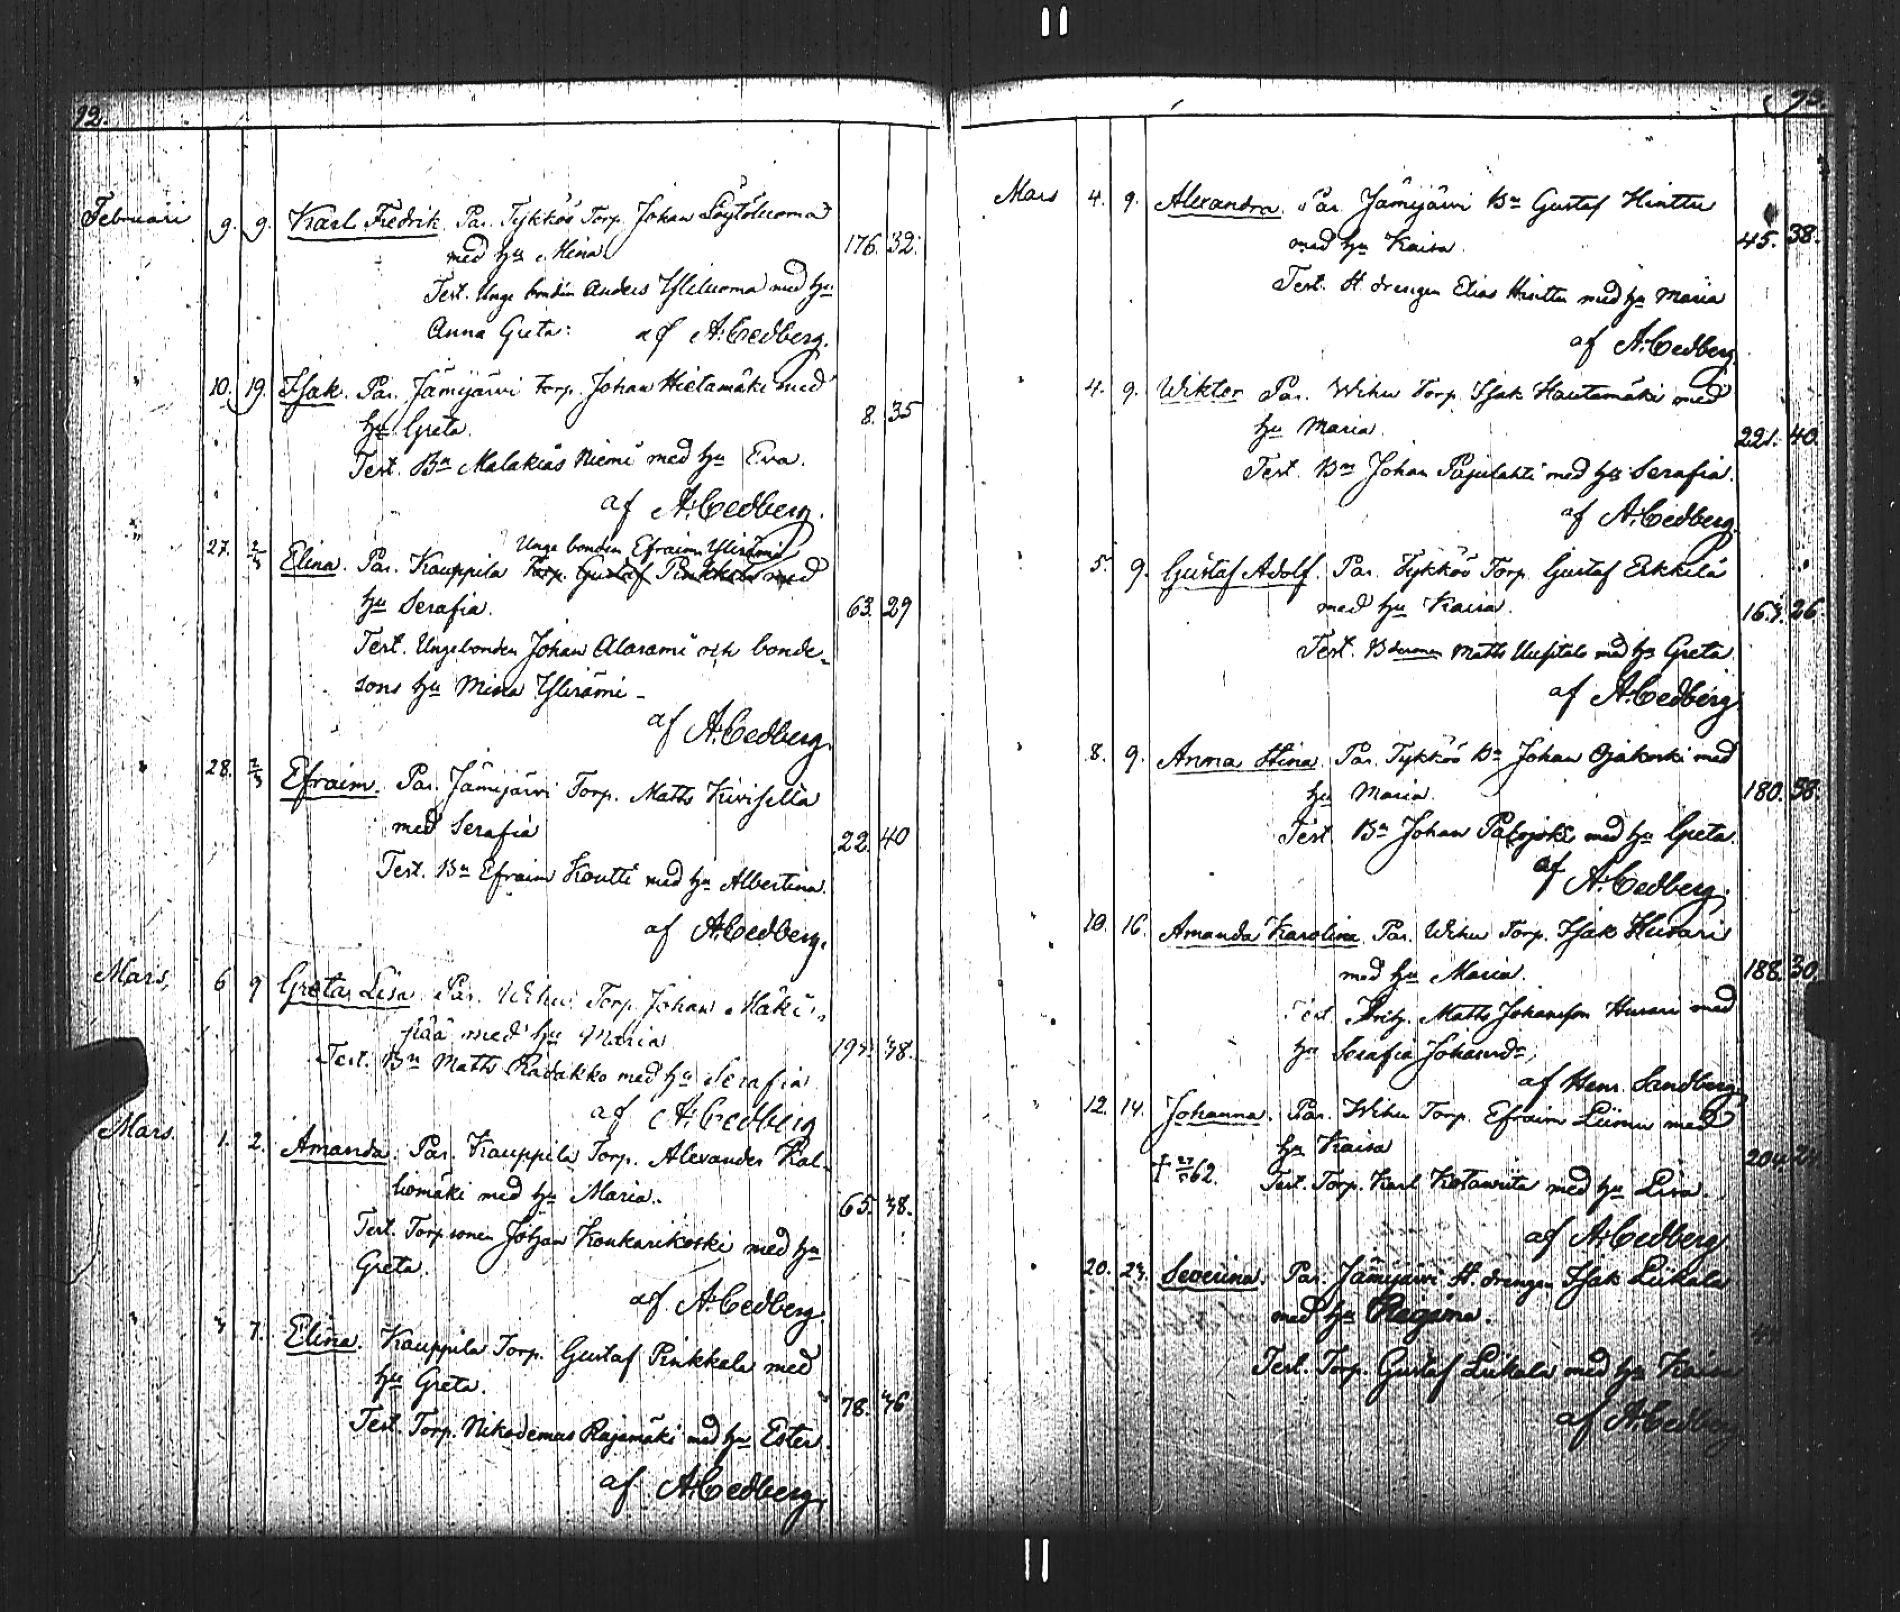 92.
Februari 9. 9. Karl Fredrik. Par. Tykköö Torp. Johan Löytöluoma
med hu Stina 176. 32.
Test. Unge bonden Anders Yliluoma med hu
Anna Greta. af A: Cedberg.
10. 19. Isak. Par. Jämijärvi Torp. Johan Hietamäki med
hu Greta. 8. 35
Test. Bn Malakias Niemi med hu Eva.
af A: Cedberg.
Unge bonden Efraim Ylirämi
27. 2/3 Elina. Par. Kauppila Torp. Gustaf Pinkkala med
hu Serafia. 63. 29
Test. Ungebonden Johan Alarämi och bonde-
sons hu Mina Ylirämi -
af A: Cedberg.
28. 2/3 Efraim. Par. Jämijärvi Torp. Matts Kivisellä
med Serafia 22. 40
Test. Bn Efraim Koutti med hu Albertina.
af A: Cedberg.
Mars, 6 9 Greta Lisa. Par. Wihu Torp. Johan Mäki-
pää med hu Maria 38.
Test. Bn Matts Rädakko med hu Serafia
af A: Cedberg
Mars. 1. 2. Amanda. Par. Kauppila Torp. Alexander Kal-
liomäki med hu Maria. 65. 38.
Test. Torpsonen Johan Koukarikoski med hu
Greta.
af A: Cedberg.
3 7. Elina. Kauppila Torp. Gustaf Pinkkala med
hu Greta. 78. 46
Test. Torp. Nikodemus Rajamäki med hu Ester.
af A: Cedberg.
93.
Mars 4. 9. Alexandra. Par. Jämijärvi Bn Gustaf Hinttu
med hu Kaisa. 45. 38.
Test. St. drengen Elias Hinttu med hu Maria
af A: Cedberg
4. 9. Wiktor Par. Wihu Torp. Isak Hautamäki med
hu Maria. 221. 40.
Test. Bn Johan Pajulahti med hu Serafia.
af A: Cedberg.
5. 9. Gustaf Adolf. Par. Tykköö Torp. Gustaf Erkkilä
med hu Kaisa. 163. 26.
Test. Matts Uusitalo med hu Greta
af A: Cedberg.
8. 9. Anna Stina. Par. Tykköö Bn Johan Ojakoski med
hu Maria. 180. 38.
Test. Bn Johan Palojoki med hu Greta.
af A: Cedberg.
10. 16. Amanda Karolina. Par. Wihu Torp. Isak Husari
med hu Maria. 188. 30.
Test. Matts Johansson Husari med
hu Serafia Johansdr,
af Henr. Sandberg
12. 14. Johanna. Par. Wihu Torp. Efraim Liimu med
hu Kaisa 204. 24.
† 62. Test. Torp. Karl Kotaviita med hu Lisa.
af A: Cedberg
20. 23. Severina. Par. Jämijärvi St. drengen Isak Liikala
med hu Regina.
Test. Torp. Gustaf Liikala med hu Kaisa
af A: Cedberg